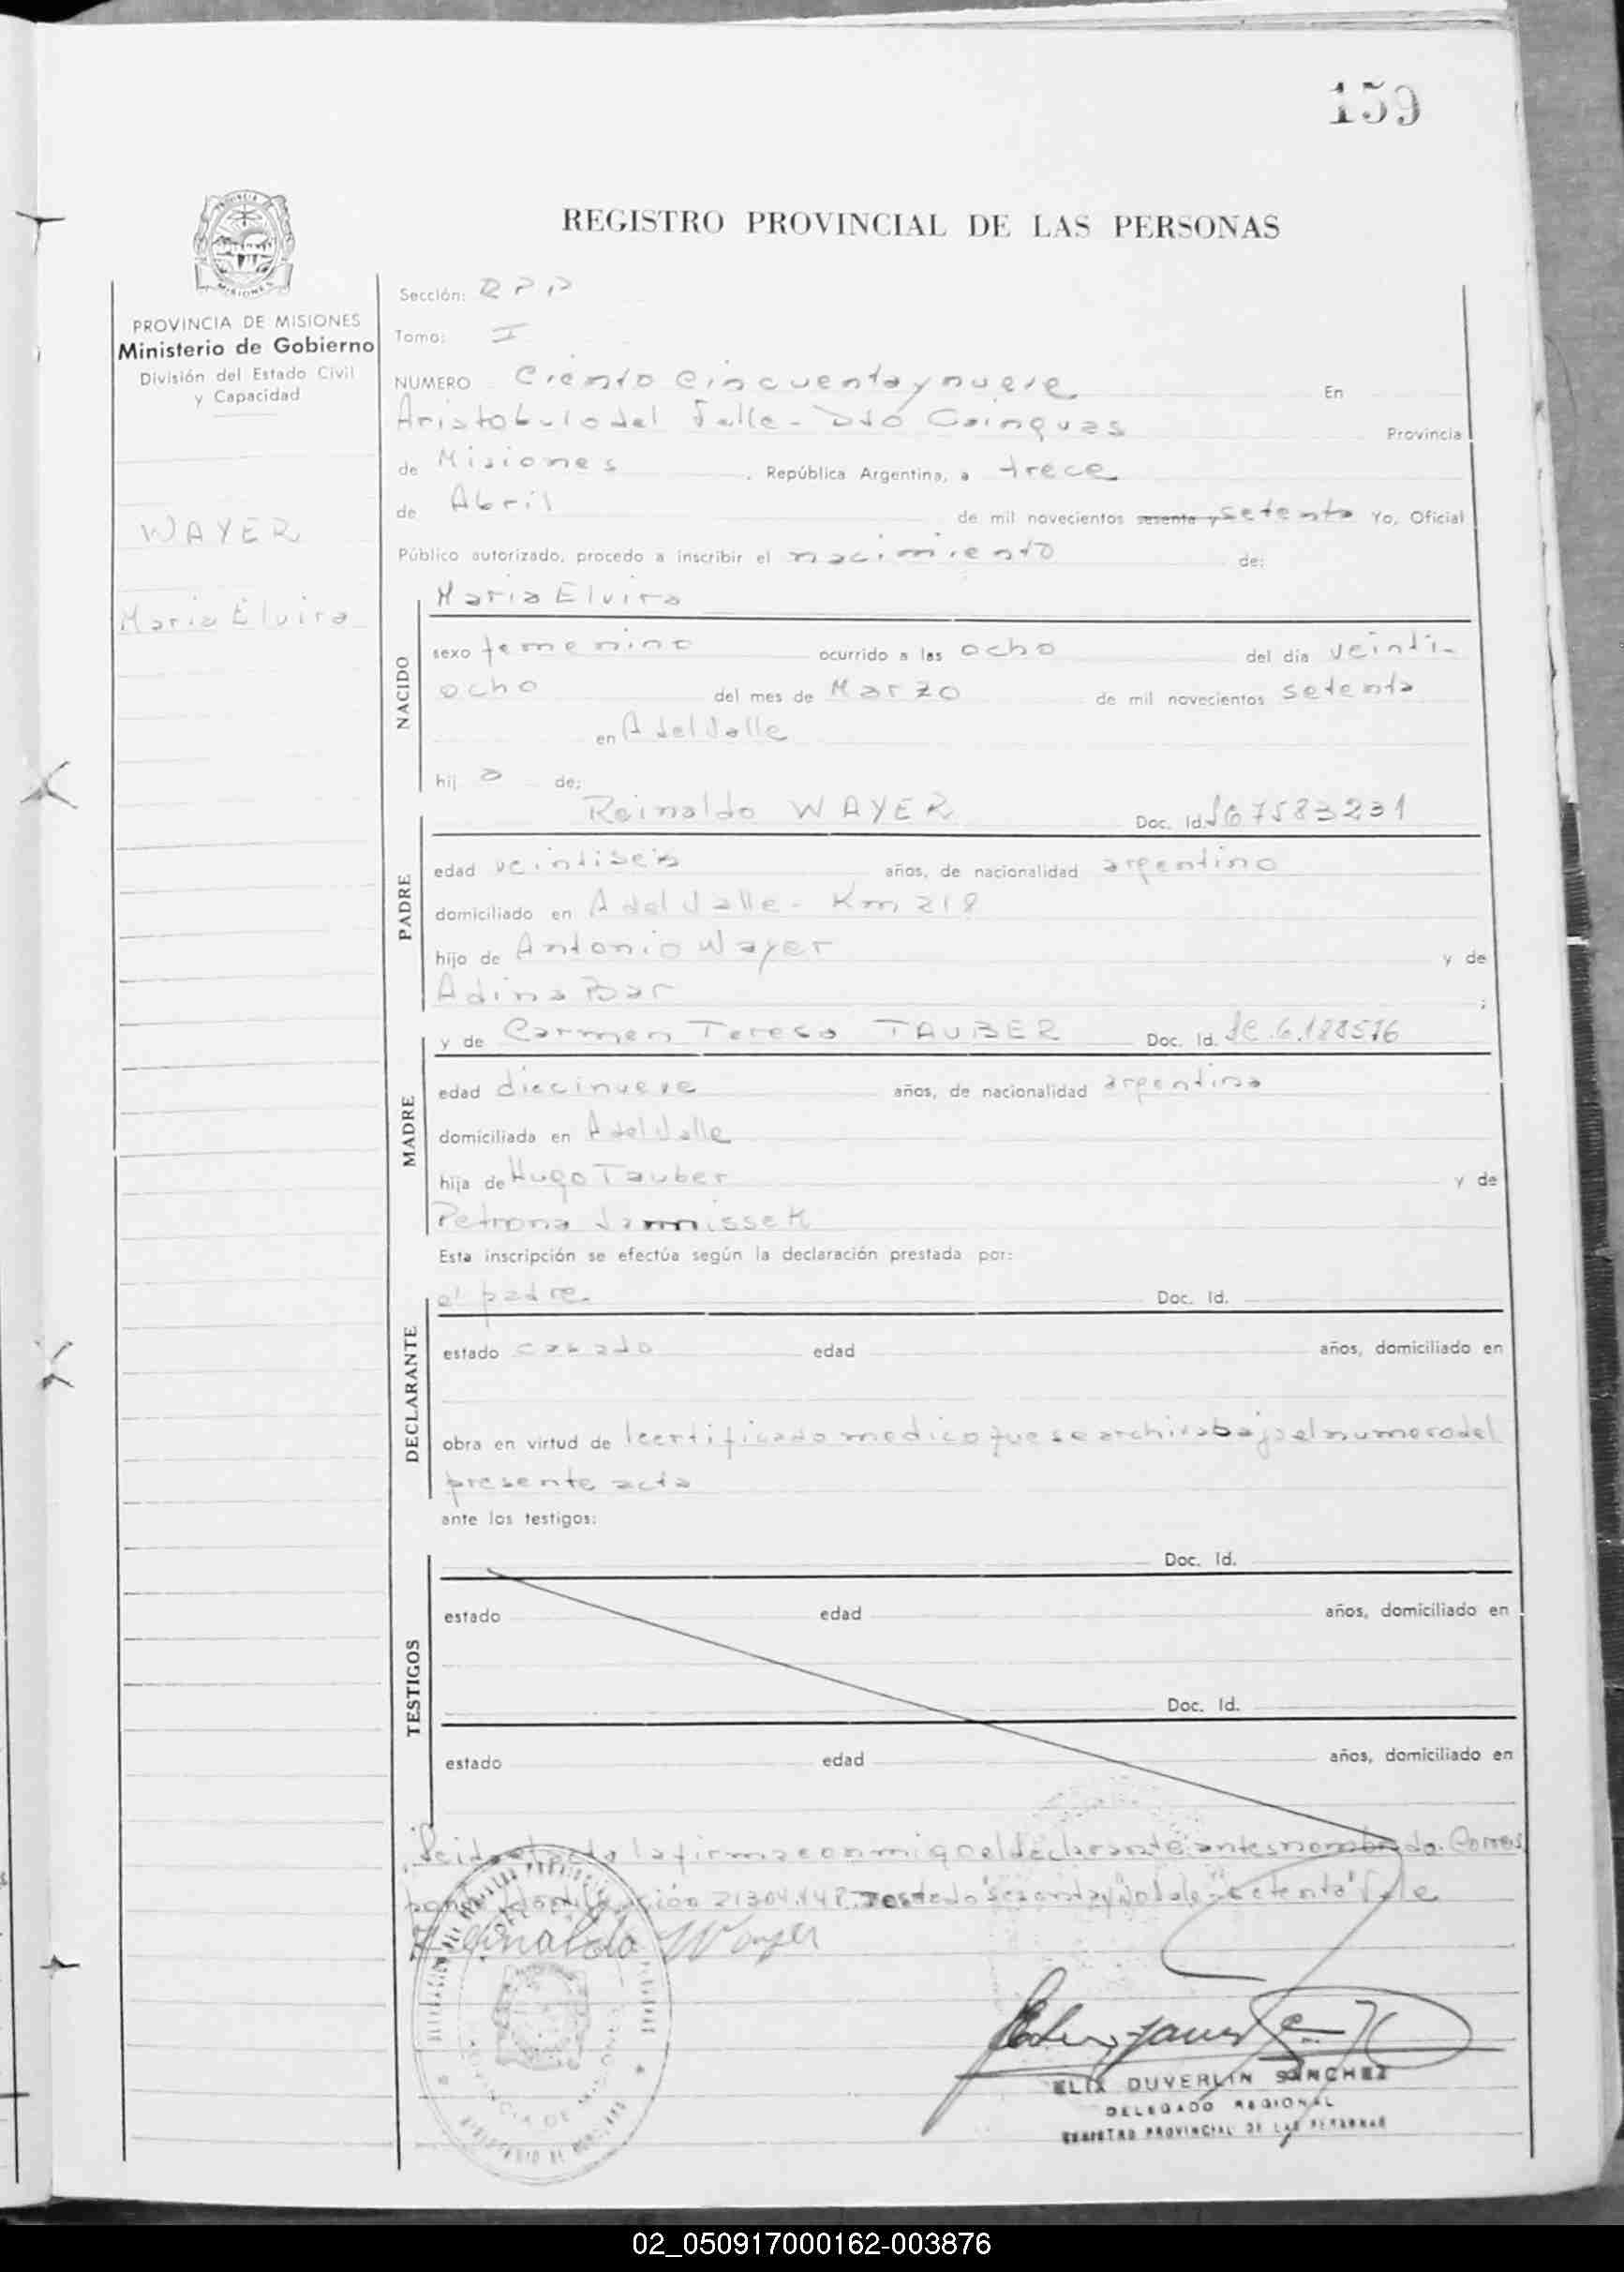 159
REGISTRO PROVINCIAL DE LAS PERSONAS
PROVINCIA DE MISIONES
Ministerio de Gobierno
División del Estado Civil
y Capacidad
WAYER
Maria Elvira
Sección: RPP
Tomo: I
NUMERO Ciento Cincuenta y nueve En
Aristobulo del Valle - Dto Cainguas Provincia
de Misiones, República Argentina, a trece
de Abril de mil novecientos sesenta y setenta Yo, Oficial
Público autorizado, procedo a inscribir el nacimiento de:
Maria Elvira
NACIDO
sexo femenino ocurrido a las ocho del día veinti-
ocho del mes de Marzo de mil novecientos setenta
en A del Valle
hij a de:
Reinaldo WAYER Doc. Id. 7583231
PADRE
edad veintiseis años, de nacionalidad argentino
domiciliado en A del Valle - Km 218
hijo de Antonio Wayer y de
Adina Bar ;
y de Carmen Teresa TAUBER Doc. Id. 6.188576
MADRE
edad diecinueve años, de nacionalidad argentina
domiciliada en A del Valle
hija de Hugo Tauber y de
Petrona Jannissek
Esta inscripción se efectúa según la declaración prestada por:
el padre. Doc. Id.
DECLARANTE
estado casado edad años, domiciliado en
obra en virtud de certificado medico que se archiva bajo el numero del
presente acta
ante los testigos:
Doc. Id.
TESTIGOS
estado edad años, domiciliado en
Doc. Id.
estado edad años, domiciliado en
la firma conmigo el declarante antes nombrado. Corres
21304.448. Testado "sesenta y" No Vale - "setenta" Vale
Reinaldo Wayer
ELIX DUVERLIN SANCHEZ
DELEGADO REGIONAL
REGISTRO PROVINCIAL DE LAS PERSONAS
PROVINCIA DE MISIONES
02_050917000162-003876